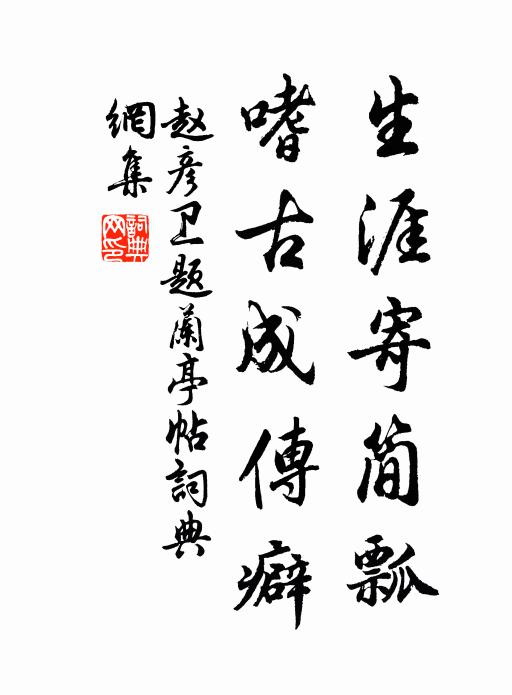 生涯寄简瓢
嗜古成傳癖
赵彦卫题蘭亭帖詞典
網集
詞典
网印